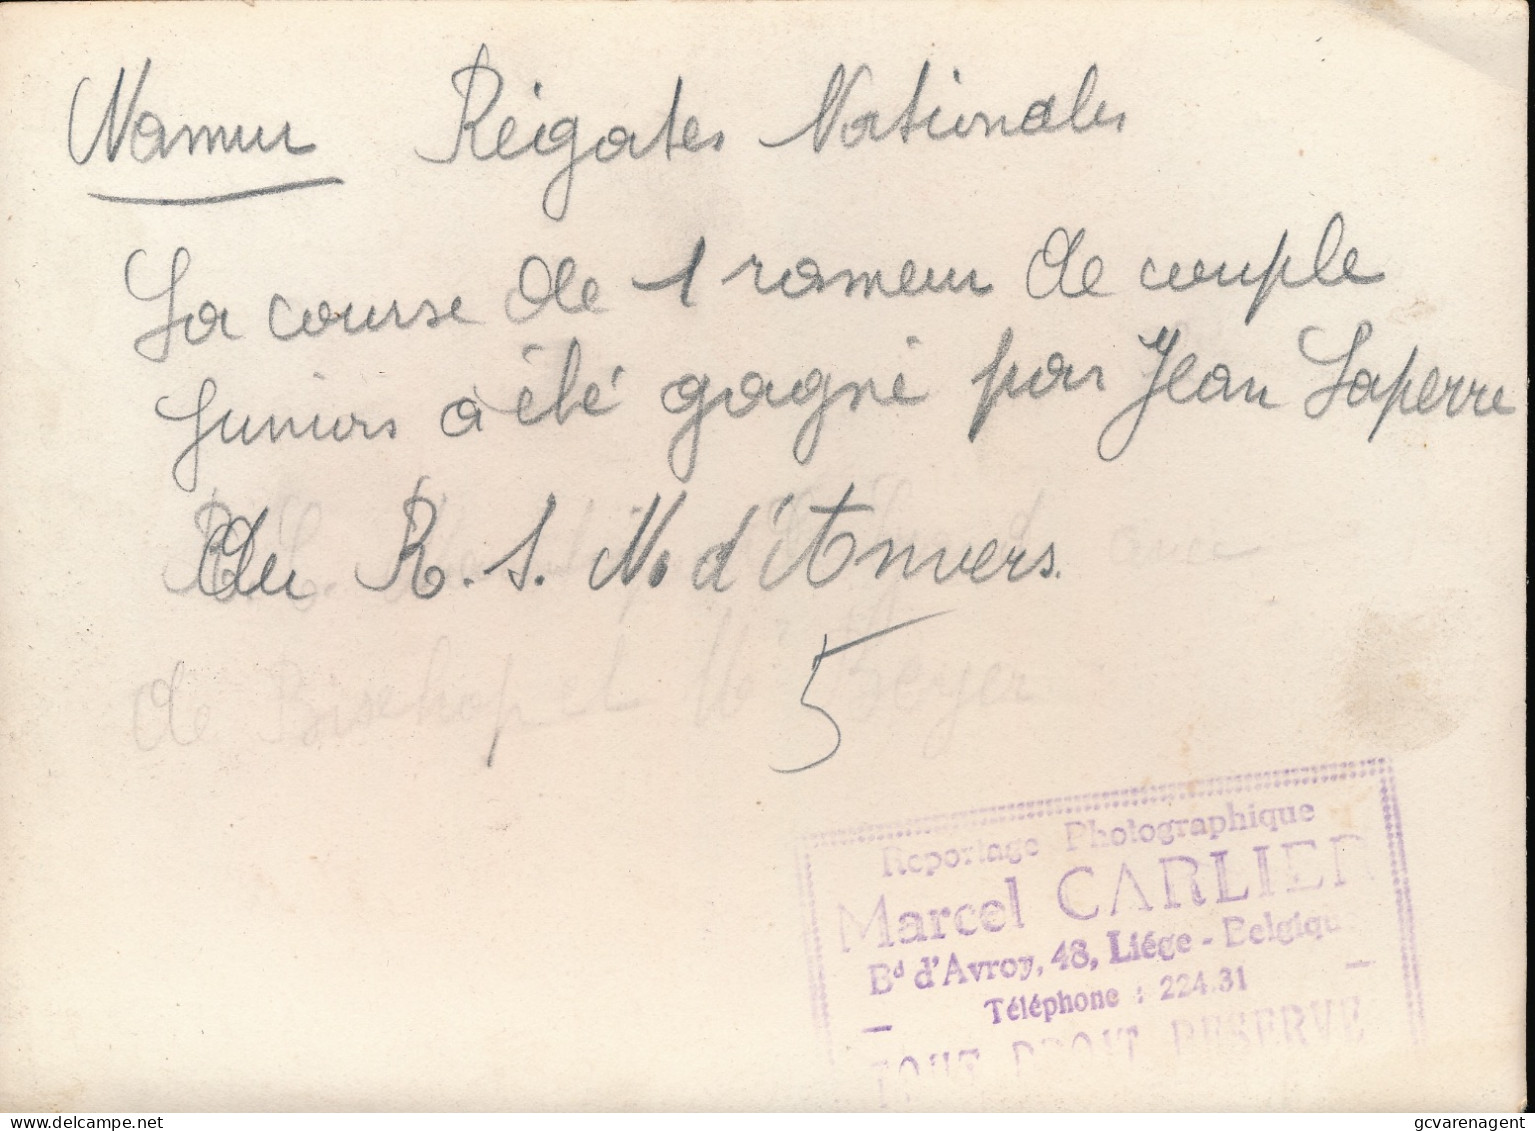 Namur Réigates Nationales
La course de 1 rameur de couple
Juniors a été gagné par Jean Laperre
du R. S. N. d'Anvers.
de Bischop et Mr Beyer
5
Reportage Photographique
Marcel CARLIER
Bd d'Avroy, 48, Liége - Belgiqu
Téléphone : 224.31
TOUT DROIT RESERVE
gcvarenagent